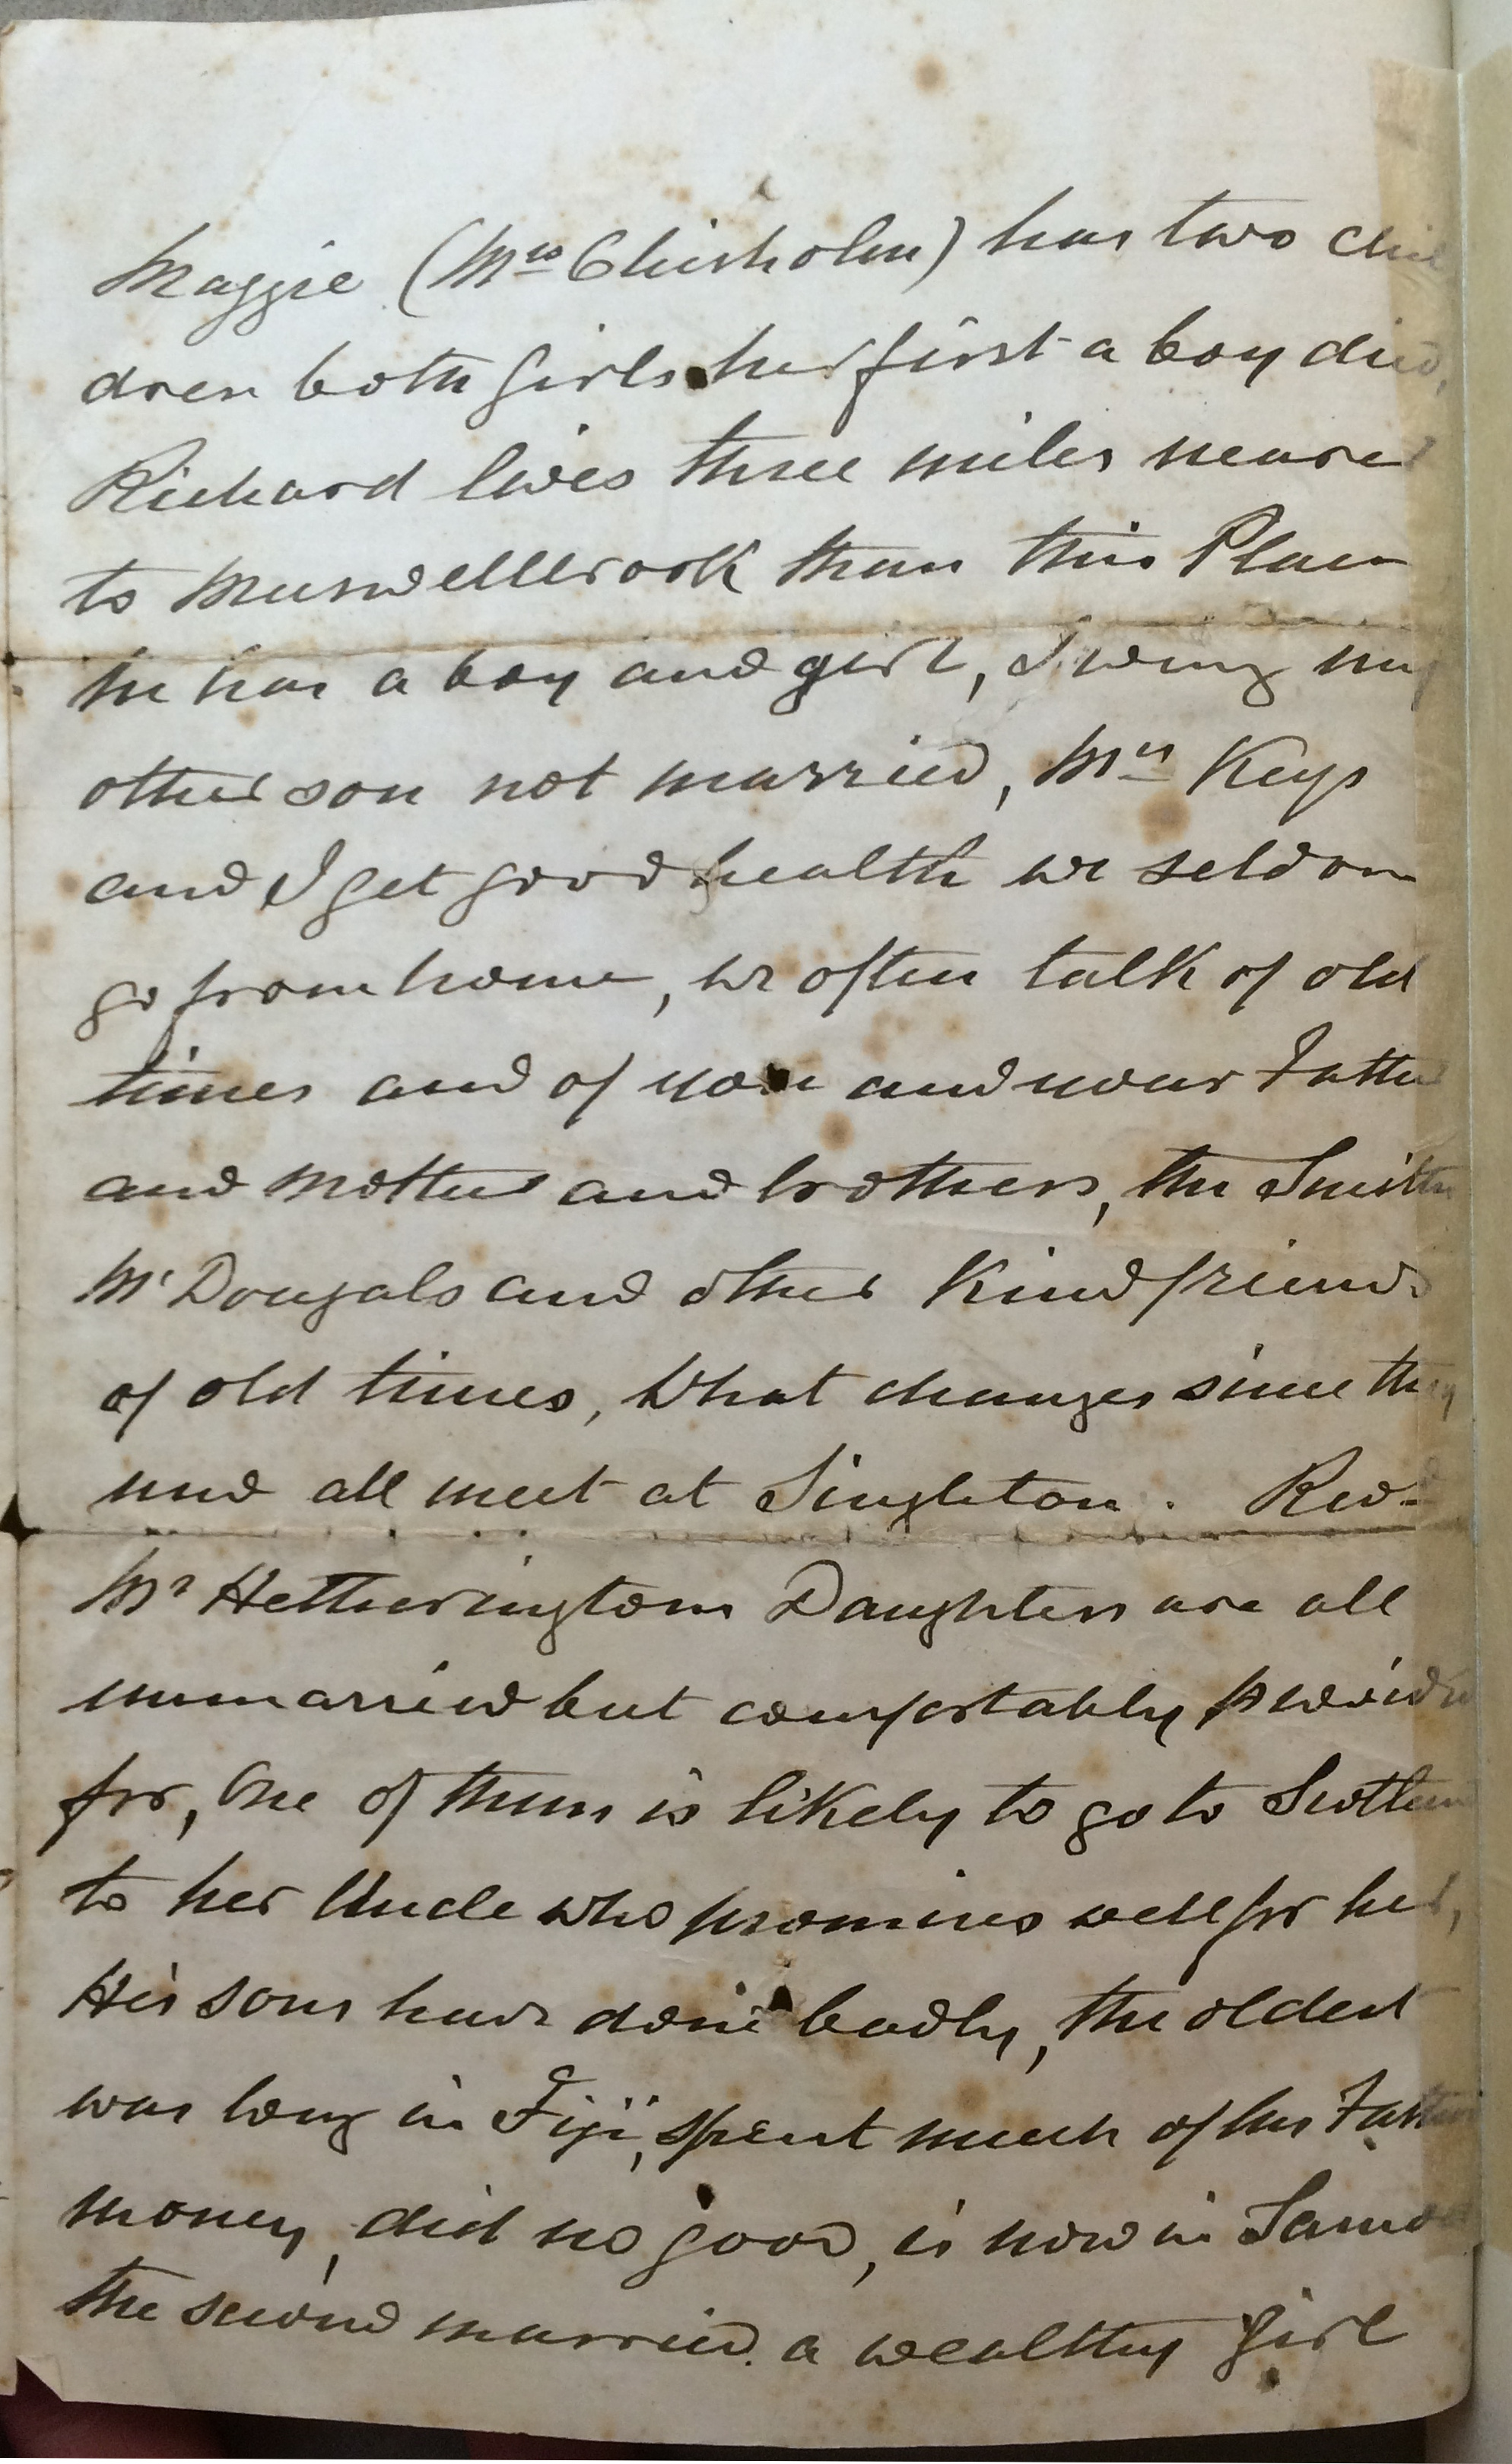 Maggie (Mrs Chisholm) has two chil
dren both girls her first a boy died,
Richard lives three miles nearer
to Muswellbrook than this Place
he has a boy and girl, Ewing my
other son not married, Mrs Keys
and I get good health we seldom
go from home, we often talk of old
times and of you and your Father
and Mother and brothers, the Smiths
McDougals and other Kind friends
of old times, What changes since they
used all meet at Singleton. Revd
Mr Hetheringtons Daughters are all
unmarried but comfortably provided
for, One of them is likely to go to Scotland
to her Uncle who promises well for her,
His sons have done badly, the oldest
was long in Fiji, spent much of his Fathers
money, did no good, is now in Samoa
the second married a wealthy girl